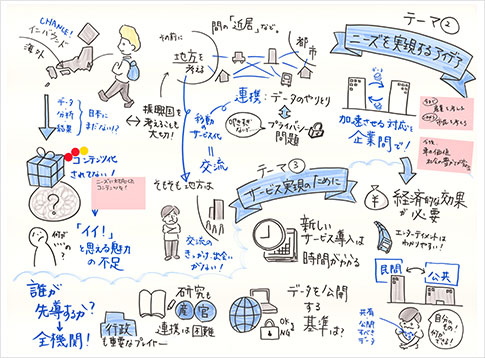 CHANCE!
インバウンド
海外
その前に
地方を
考える
間の「近居」など。
都市
テーマ②
ニーズを実現するアイデア
データ
分析
結果
日本に
まだない!?
↔ 振興国を
考えることも
大切!
移動の
サービス化
= 交流
連携:データのやりとり
プライバシー
問題
加速させる対応を
企業間で!
コンテンツ化
されてない!
?
「イイ!」
と思える魅力
の不足
何が
いいの?
そもそも地方は
交流の
きっかけ、出会い
がない!
テーマ③
サービス実現のために
新しい
サービス導入は
時間がかかる
¥
経済的な効果
が必要
エンターテイメントは
わかりやすい!
民間
公共
誰が
先導するか?
全機関!
行政
も重要なプレイヤー
研究も
産官
連携は困難
データを公開
する
基準は?
OK
NG
共有
公開
すべき
データ
自分のもの
何ができる!